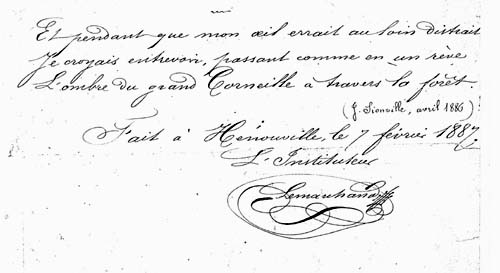 Et pendant que mon œil errait au loin distrait
Je croyais entrevoir, passant comme en un rêve
L'ombre du grand Corneille à travers la forêt.
(J. Sionville, avril 1886)
Fait à Hénouville, le 7 février 1887
L'Instituteur
Lemarchand